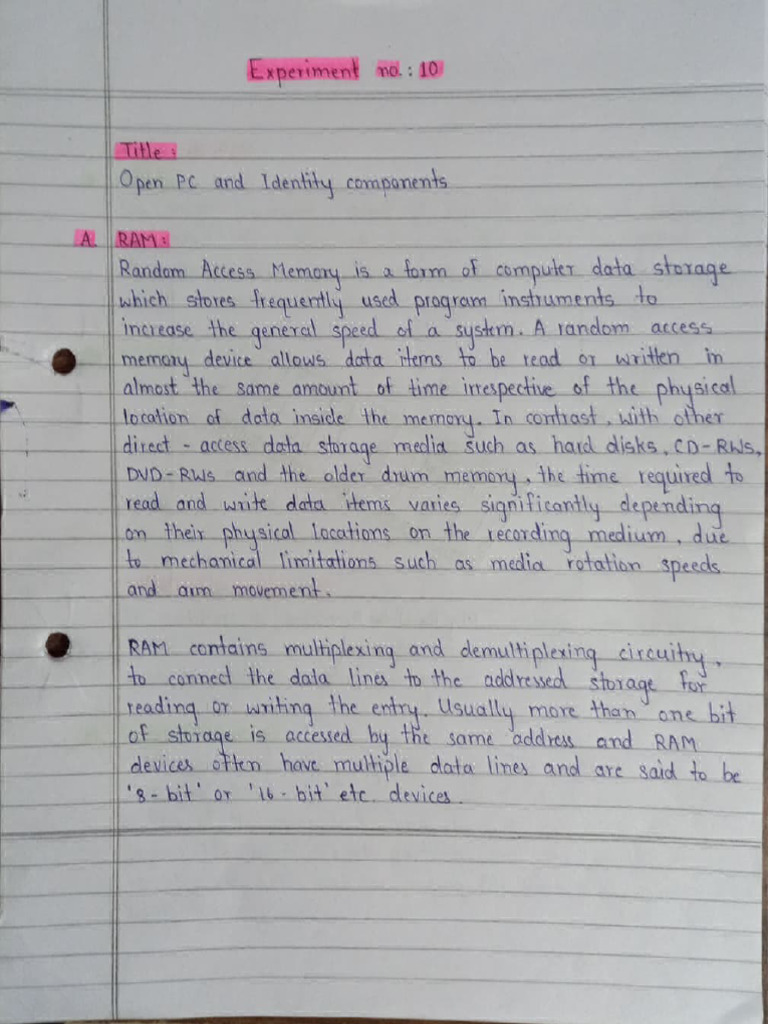 Experiment no.: 10
Title:
Open PC and Identity components
A. RAM:
Random Access Memory is a form of computer data storage
which stores frequently used program instruments to
increase the general speed of a system. A random access
memory device allows data items to be read or written in
almost the same amount of time irrespective of the physical
location of data inside the memory. In contrast, with other
direct - access data storage media such as hard disks, CD-RWs,
DVD-RWs and the older drum memory, the time required to
read and write data items varies significantly depending
on their physical locations on the recording medium, due
to mechanical limitations such as media rotation speeds
and arm movement.
RAM contains multiplexing and demultiplexing circuitry,
to connect the data lines to the addressed storage for
reading or writing the entry. Usually more than one bit
of storage is accessed by the same address and RAM
devices often have multiple data lines and are said to be
'8-bit' or '16-bit' etc. devices.